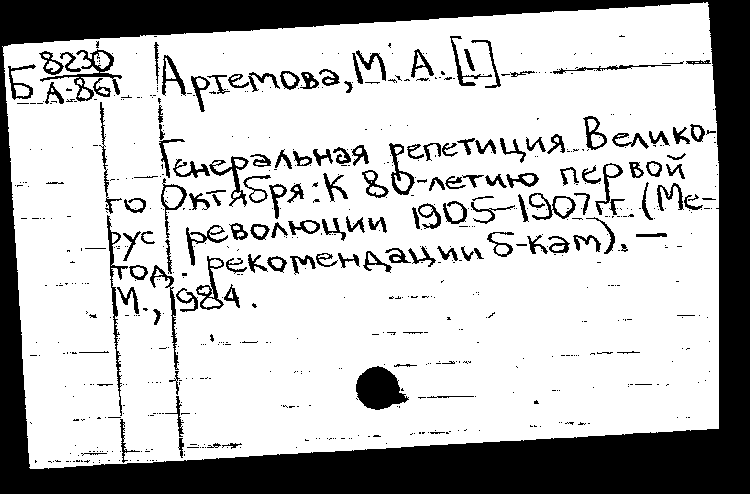 Б 8230
А-861
Артемова, М. А. [1]
Генеральная репетиция Велико-
го Октября: К 80-летию первой
рус революции 1905-1907гг. (Ме-
тод. рекомендации б-кам). —
М., 1984.